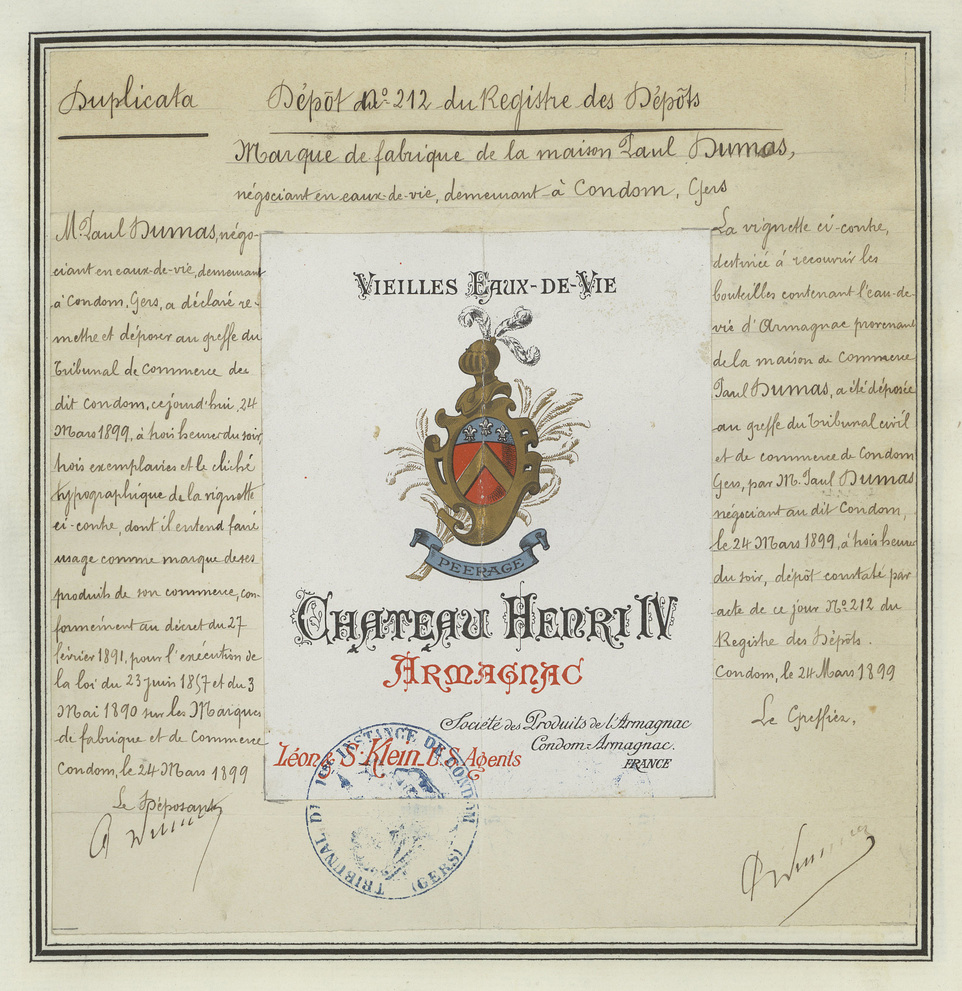 Duplicata
Dépôt No. 212 du Registre des Dépôts
Marque de fabrique de la maison Paul Dumas,
négociant en eaux-de-vie, demeurant à Condom, Gers
M. Paul Dumas, négo-
ciant en eaux-de-vie, demeurant
à Condom, Gers, a déclaré re-
mettre et déposer au greffe du
Tribunal de Commerce de
dit Condom, ce jourd'hui, 24
Mars 1899, à trois heures du soir,
trois exemplaires et le cliché
typographique de la vignette
ci-contre, dont il entend faire
usage comme marque de ses
produits de son commerce, con-
formément au décret du 27
février 1891, pour l'exécution de
la loi du 23 juin 1857 et du 3
Mai 1890 sur les Marques
de fabrique et de Commerce
Condom, le 24 Mars 1899
Le Déposant
VIEILLES EAUX-DE-VIE
PEERAGE
CHATEAU HENRI IV
ARMAGNAC
Société des Produits de l'Armagnac
Condom-Armagnac.
FRANCE
Léon & S. Klein_B.S. Agents
TRIBUNAL DE 1ERE INSTANCE DE CONDOM
(GERS)
La vignette ci-contre,
destinée à recouvrir les
bouteilles contenant l'eau-de-
vie d'Armagnac provenant
de la maison de Commerce
Paul Dumas, a été déposée
au greffe du Tribunal civil
et de commerce de Condom
Gers, par M. Paul Dumas
négociant au dit Condom,
le 24 Mars 1899, à trois heures
du soir, dépôt constaté par
acte de ce jour No. 212 du
Registre des Dépôts.
Condom, le 24 Mars 1899
Le Greffier,